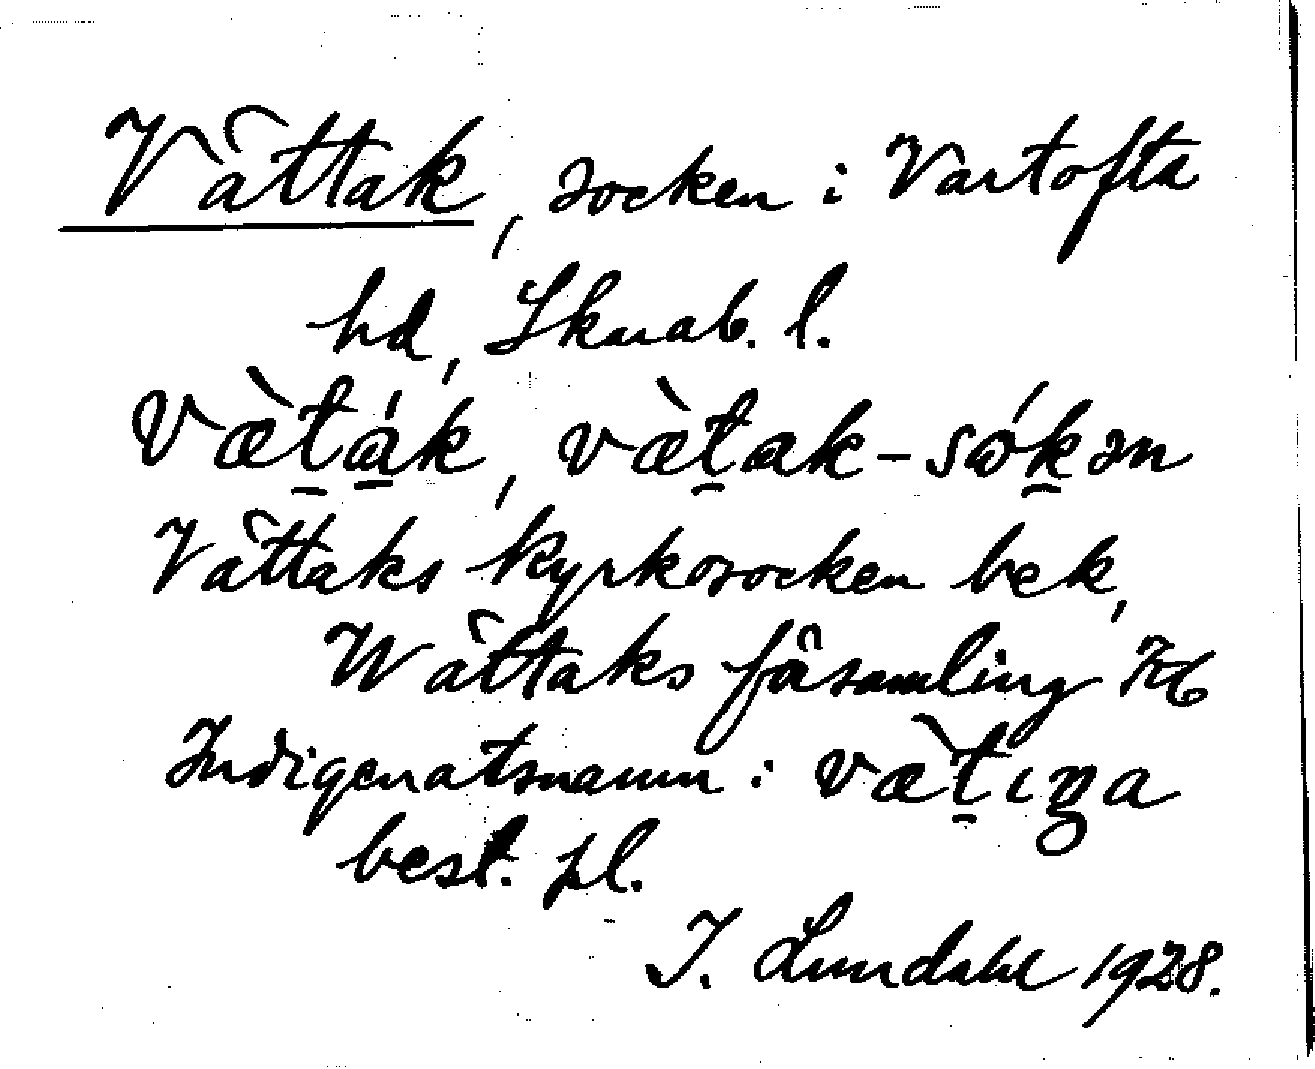 Vättak, socken i Vartofta
hd, Skarab. l.
væ̀ta̱k, væ̀tak-sóḵən
Vättaks kyrkosocken bek,
Wättaks fösamling
Indigenatsnamn: væ̀tıŋa
best. pl.
I. Lundahl 1928.